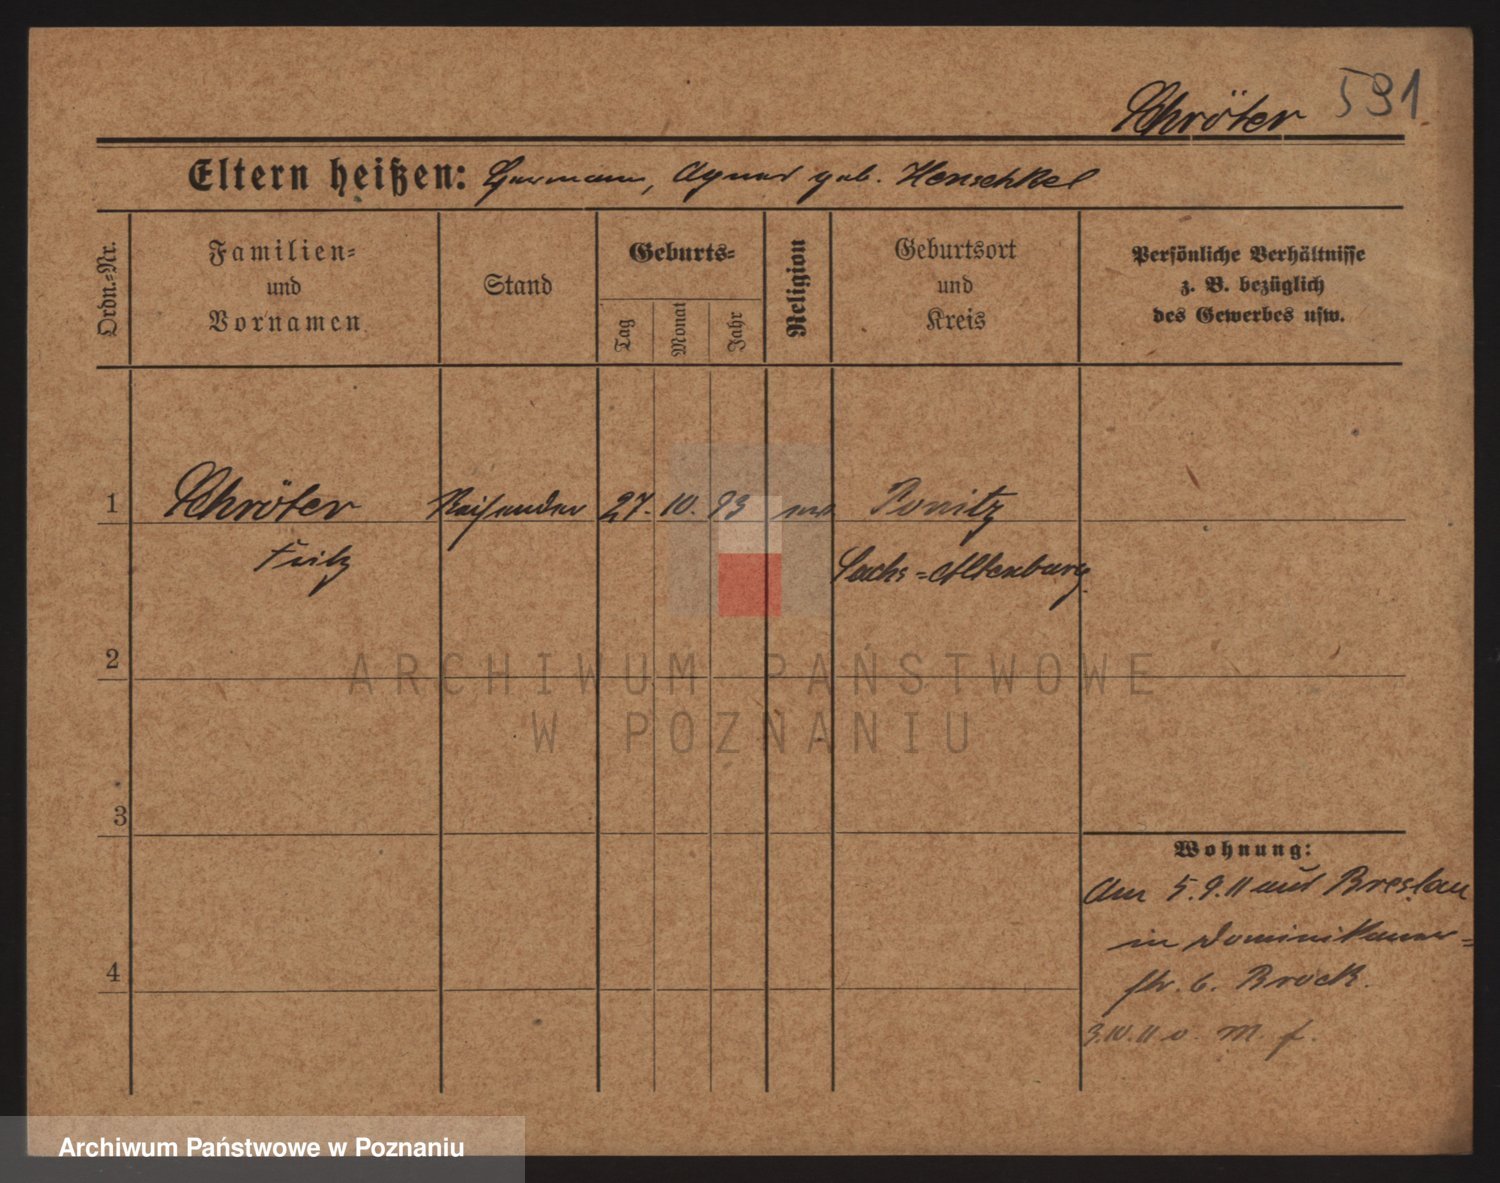 Schröter 591
Eltern heißen: Hermann, Agnes geb. Henschkel
Ordn.=Nr.
Familien=
und
Vornamen
Stand
Geburts=
Tag
Monat
Jahr
Religion
Geburtsort
und
Kreis
Persönliche Verhältnisse
z. B. bezüglich
des Gewerbes usw.
1 Schröter Reisender 27. 10. 93 Ponitz
Fritz Sachs=Altenburg
2
3
4
Wohnung:
Am 5.9.11 aus Breslau
in Dominikaner=
str. 6. Brock.
3.10.11 v. M. f.
ARCHIWUM PAŃSTWOWE
W POZNANIU
Archiwum Państwowe w Poznaniu